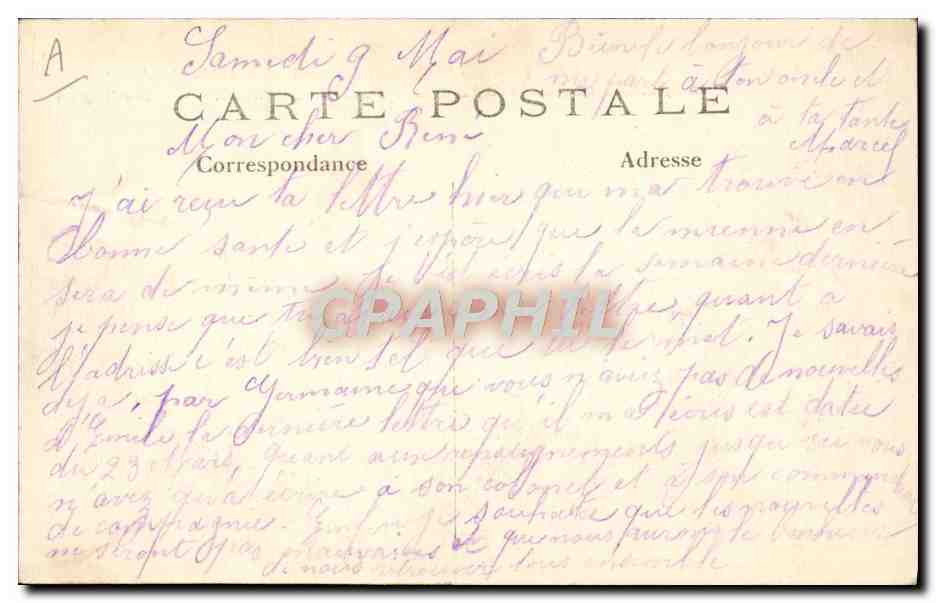 A
Samedi 9 Mai
Bien le bonjour de
ma part à ton oncle et
à ta tante
Marcel
CARTE POSTALE
Mon cher Ben
Correspondance
Adresse
J'ai reçu ta lettre hier que m'a trouvé en
bonne sante et j'espère que la mienne en
sera de même. Je t'ai écris la semaine dernière
je pense que tu quant a
l'adresse c'est bien tel que Je savais
deja, par Germaine que vous n'aviez pas de nouvelles
d'Emile, la dernière lettre qu'il m'a écris est datée
du 23 Mars, Quant aux renseignements vous
n'avez qu'a écrire à son colonel et à son commandant
de compagnie. Enfin je souhaite que les nouvelles
ne seront pas mauvaises et que nous aurons le bonheur
de nous retrouver tous ensemble
CPAPHIL